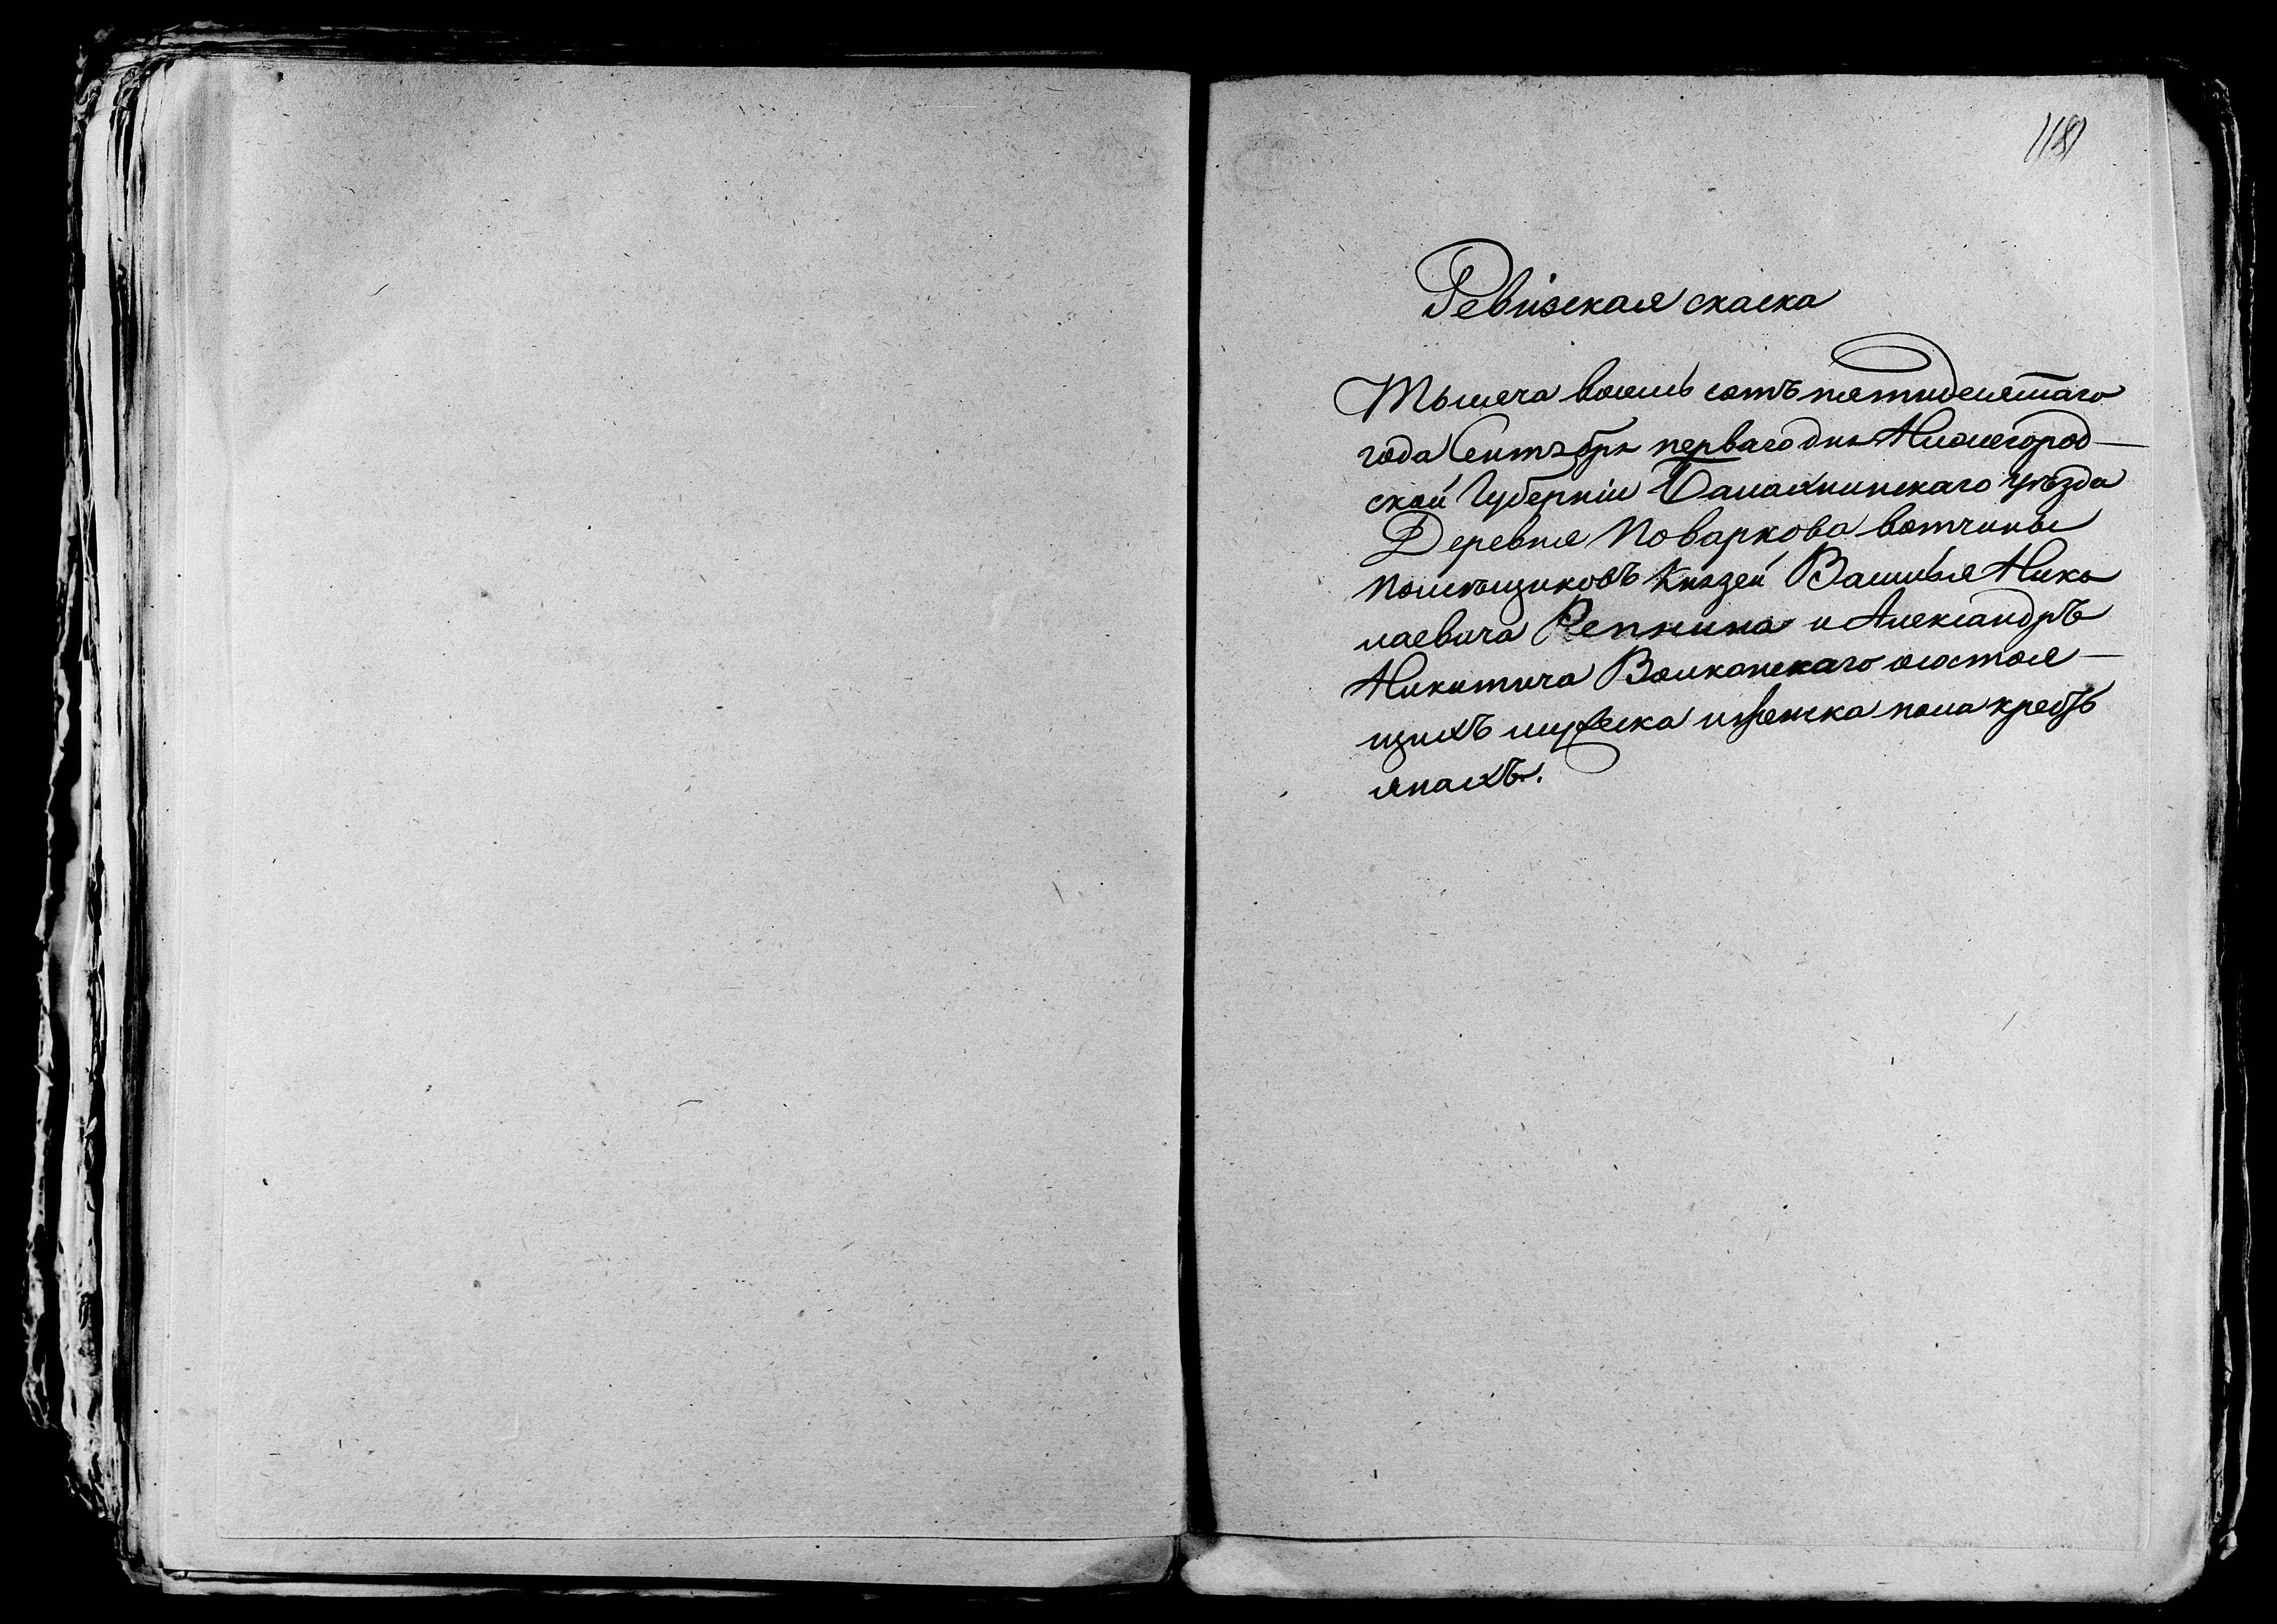 1181
Ревизская скаска
Тысяча восемь сотъ пятидесятаго
года Сентября перваго дня Нижегород-
ской Губерніи Балахнинскаго уѣзда
Деревня Поваркова вотчины
помѣщиковъ Князей Василья Нико
лаевича Репнина и Александръ
Никитича Волконскаго о состоя-
щихъ мужеска и женска пола кресть
янахъ.